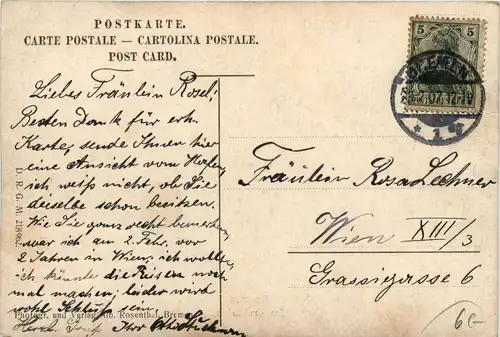 POSTKARTE.
CARTE POSTALE — CARTOLINA POSTALE.
POST CARD.
5 5
BREMEN
1
Liebes Fräulein Rosel!
Besten Dank für erh.
Karte, sende Ihnen hier
eine Ansicht vom
ich weiß nicht, ob Sie
dieselbe schon besitzen.
Wie Sie ganz recht bemerken,
war ich am 2. Febr. vor
2 Jahren in Wien; ich wollte,
ich könnte die Reisen noch
mal machen; leider wird
wohl Schluß sein.
Gruß Ihr
Fräulein Rosa Lechner
Wien XIII/3
Grassigasse 6
D. R. G. M. 218962.
Photogr. und Verlag Rosenthal, Bremen
6-